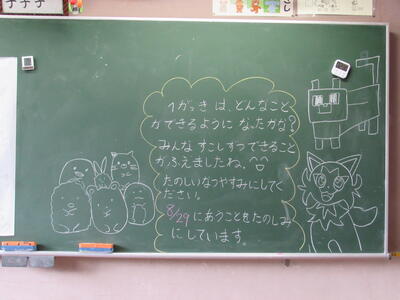 1がっきは、どんなこと
ができるようになったかな？
みんなすこしずつできること
がふえましたね。
たのしいなつやすみにしてく
ださい。
8/29にあうことをたのしみ
にしています。